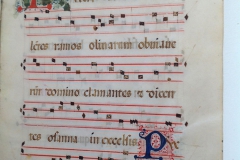 lentes ramos olivarum obviave
runt domino clamantes et dicen
tes osanna in excelsis P